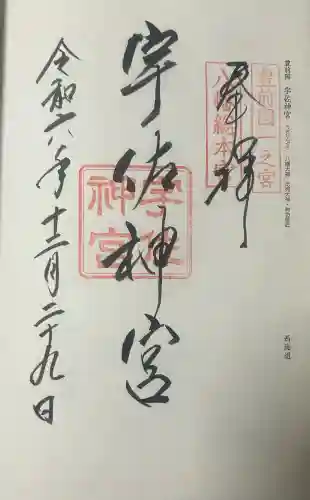 豊前国 宇佐神宮
西海道
豊前国一之宮
八幡総本宮
奉拝
宇佐神宮
宇佐神宮
令和六年十二月二十九日